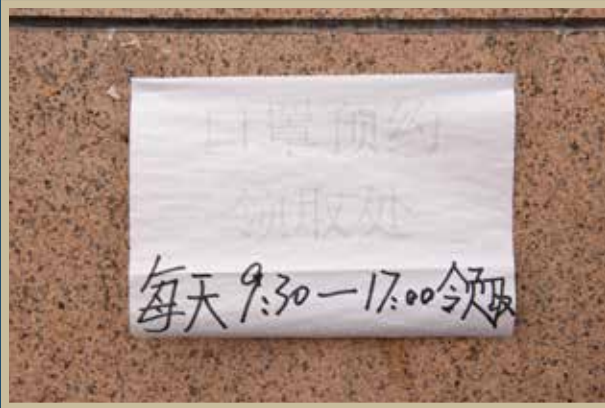 口罩预约
领取处
每天9:30—17:00领取